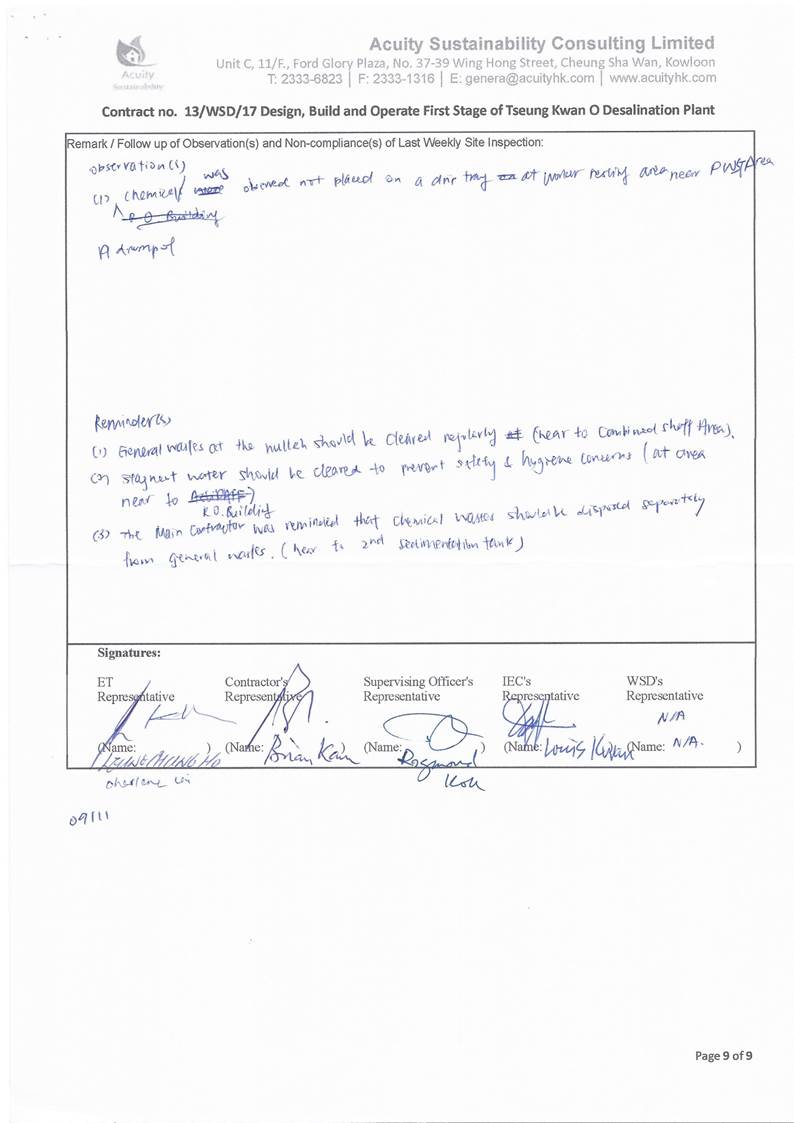 Acuity Sustainability Consulting Limited
Unit C, 11/F., Ford Glory Plaza, No. 37-39 Wing Hong Street, Cheung Sha Wan, Kowloon
T: 2333-6823 | F: 2333-1316 | E: genera@acuityhk.com | www.acuityhk.com
Acuity
Sustainability
Contract no. 13/WSD/17 Design, Build and Operate First Stage of Tseung Kwan O Desalination Plant
Remark / Follow up of Observation(s) and Non-compliance(s) of Last Weekly Site Inspection:
observation(s)
was
(1) chemical observed not placed on a drip tray at worker resting area near Area
R.O. Building
A drum of
Reminder(s)
(1) General wastes at the nullah should be cleared regularly (near to Combined Shaft Area).
(2) stagnent water should be cleared to prevent safety & hygiene concerns (at area
near to )
R.O. Building
(3) The Main Contractor was reminded that chemical wastes should be disposed separately
from general wastes. (near to 2nd sedimentation tank)
Signatures:
ET Contractor's Supervising Officer's IEC's WSD's
Representative Representative Representative Representative Representative
N/A
(Name: ) (Name: Brian Kam) (Name: ) (Name: Louis Kwan (Name: N/A. )
Raymond
09/11
Page 9 of 9